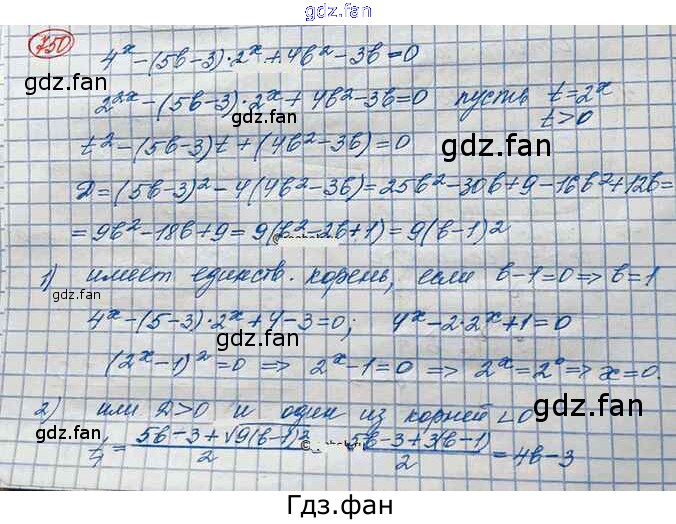 gdz.fan
750
4ˣ-(5в-3)·2ˣ+4в²-3в=0
gdz.fan gdz.fan
2²ˣ-(5в-3)·2ˣ+4в²-3в=0 пусть t=2ˣ
gdz.fan t>0
t²-(5в-3)t+(4в²-3в)=0
gdz.fan gdz.fan
Д=(5в-3)²-4(4в²-3в)=25в²-30в+9-16в²+12в=
=9в²-18в+9=9(в²-2в+1)=9(в-1)²
1) имеет единств. корень, если в-1=0=>в=1
gdz.fan
4ˣ-(5-3)·2ˣ+4-3=0; 4ˣ-2·2ˣ+1=0
gdz.fan gdz.fan
(2ˣ-1)²=0 => 2ˣ-1=0 => 2ˣ=2⁰=>x=0.
2) или Д>0 и один из корней <0
gdz.fan gdz.fan
t₁=(5в-3+√9(в-1)²)/2 = (5в-3+3(в-1))/2=4в-3
Гдз.фан